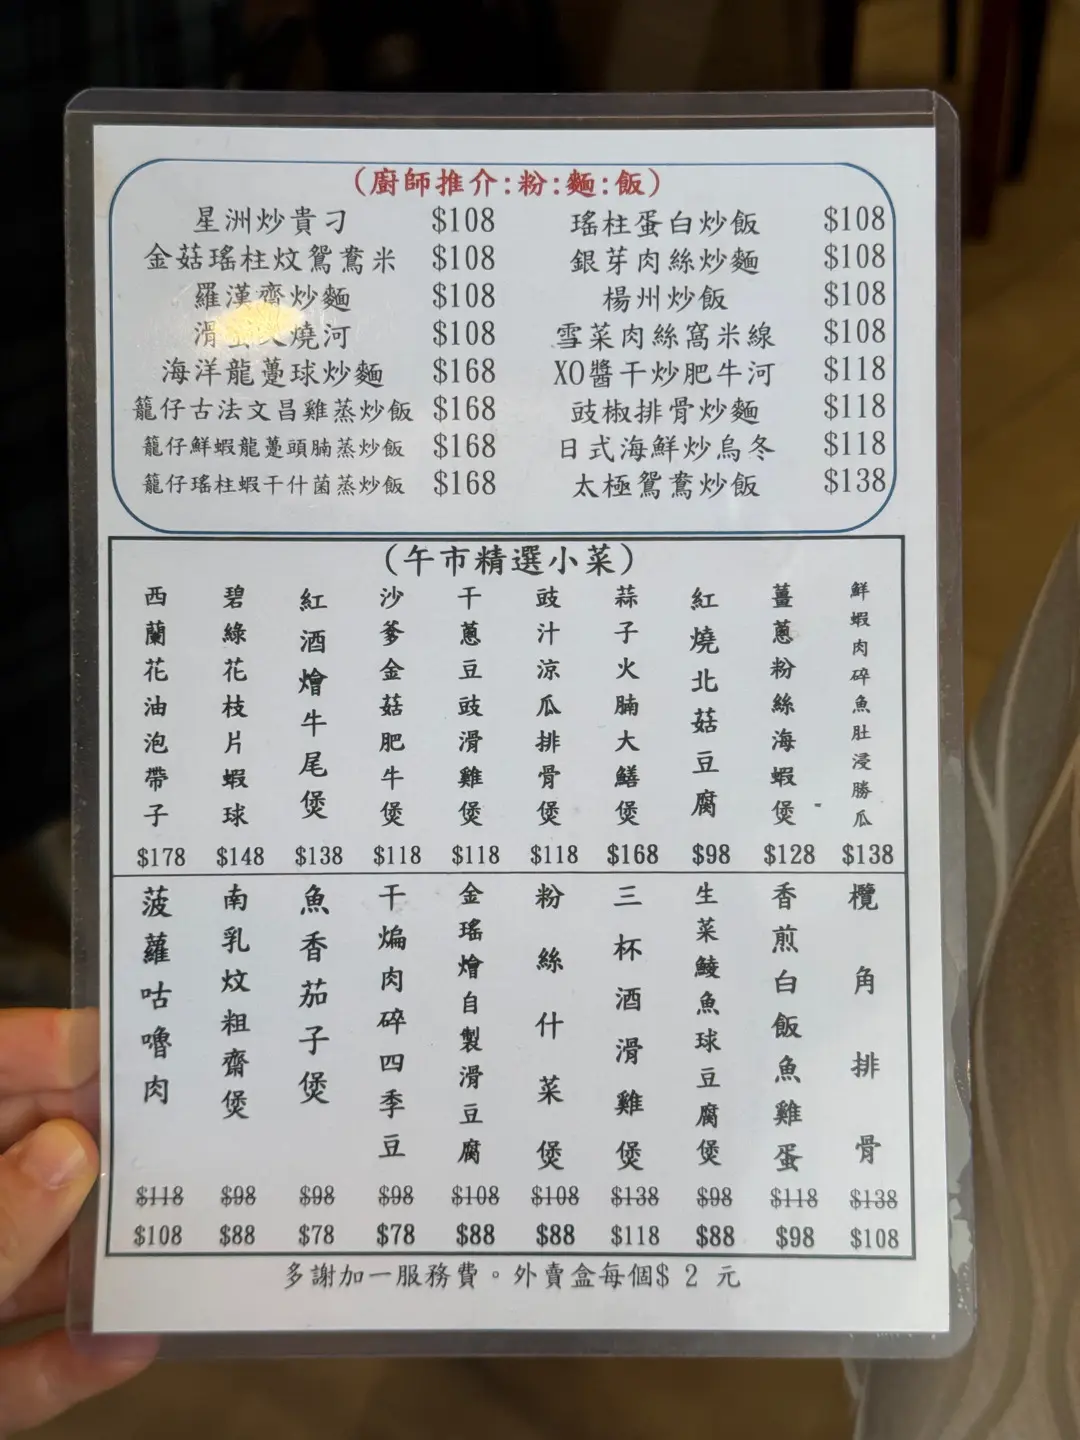 (廚師推介:粉:麵:飯)
星洲炒貴刁 $108
金菇瑤柱炆鴛鴦米 $108
羅漢齋炒麵 $108
滑 燒河 $108
海洋龍躉球炒麵 $168
籠仔古法文昌雞蒸炒飯 $168
籠仔鮮蝦龍躉頭腩蒸炒飯 $168
籠仔瑤柱蝦干什菌蒸炒飯 $168
瑤柱蛋白炒飯 $108
銀芽肉絲炒麵 $108
楊州炒飯 $108
雪菜肉絲窩米線 $108
XO醬干炒肥牛河 $118
豉椒排骨炒麵 $118
日式海鮮炒烏冬 $118
太極鴛鴦炒飯 $138
(午市精選小菜)
西蘭花油泡帶子 $178
碧綠花枝片蝦球 $148
紅酒燴牛尾煲 $138
沙爹金菇肥牛煲 $118
干蔥豆豉滑雞煲 $118
豉汁涼瓜排骨煲 $118
蒜子火腩大鱔煲 $168
紅燒北菇豆腐 $98
薑蔥粉絲海蝦煲 $128
鮮蝦肉碎魚肚浸勝瓜 $138
菠蘿咕嚕肉 $118 $108
南乳炆粗齋煲 $98 $88
魚香茄子煲 $98 $78
干煸肉碎四季豆 $98 $78
金瑤燴自製滑豆腐 $108 $88
粉絲什菜煲 $108 $88
三杯酒滑雞煲 $138 $118
生菜鯪魚球豆腐煲 $98 $88
香煎白飯魚雞蛋 $118 $98
欖角排骨 $138 $108
多謝加一服務費。外賣盒每個$ 2 元